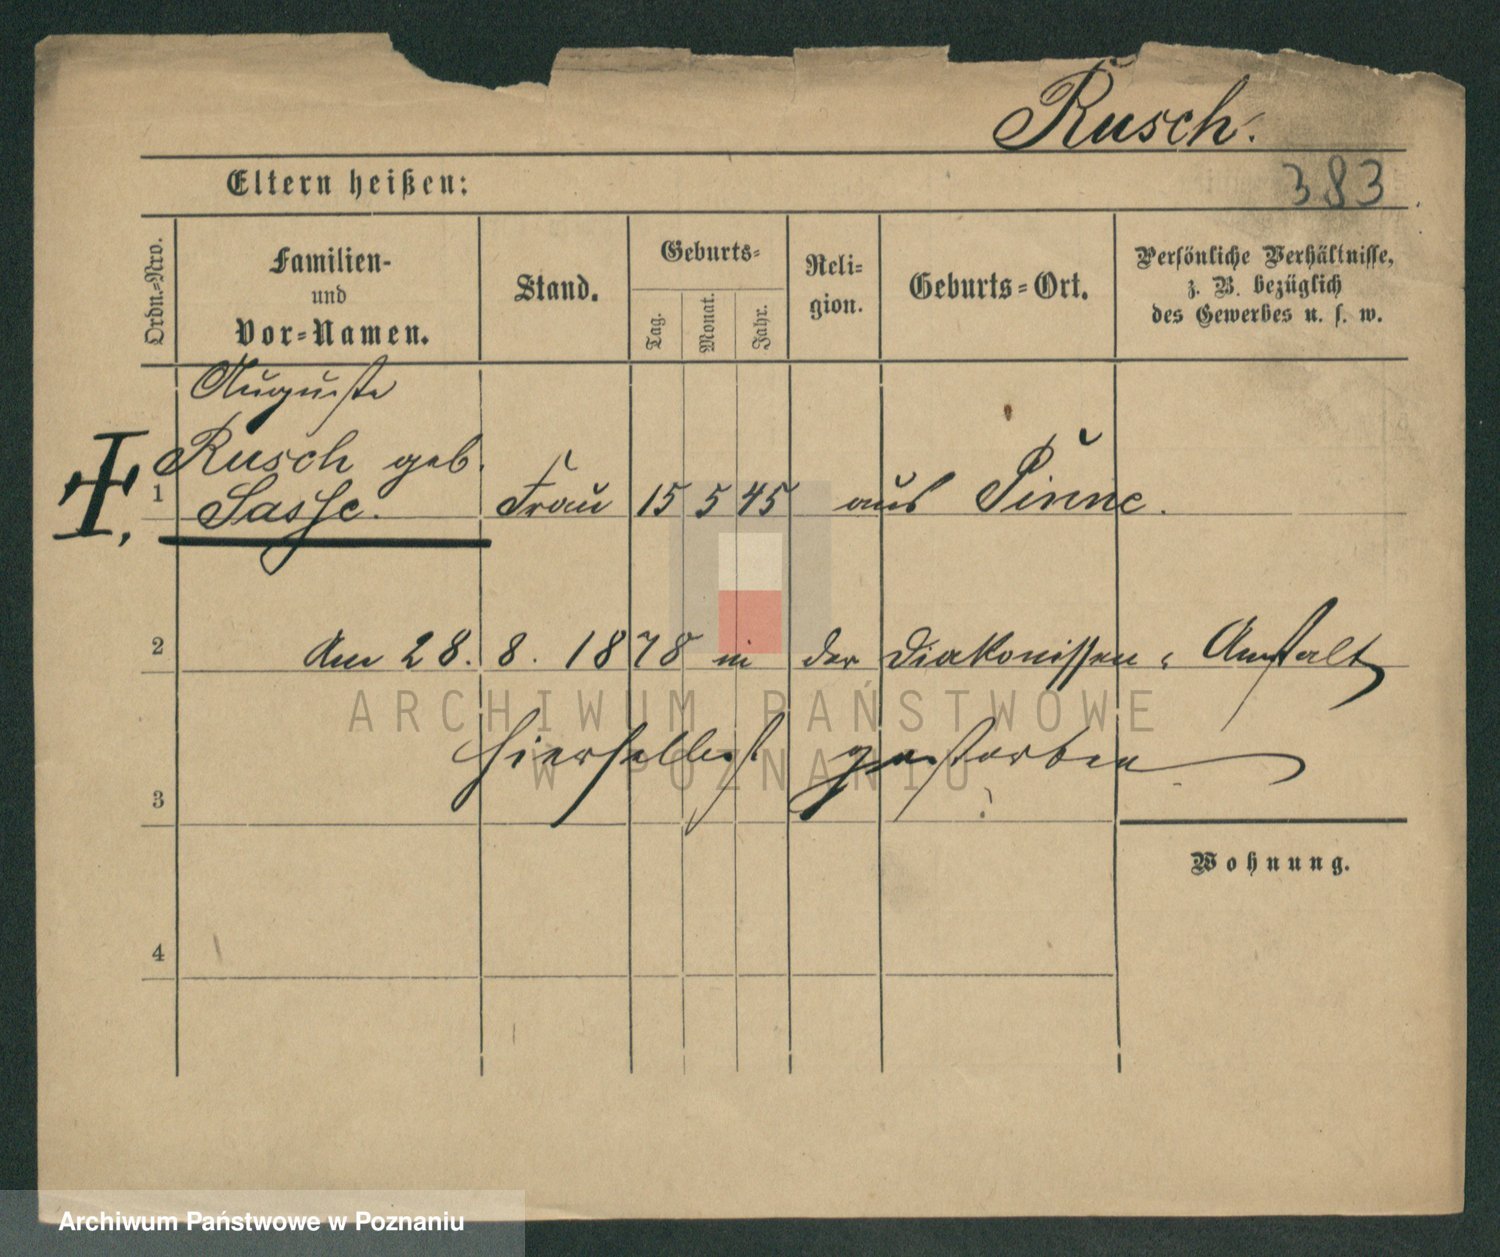 Rusch.
Eltern heißen:
383
Ordn.-Nro.
Familien-
und
Vor-Namen.
Stand.
Geburts-
Tag.
Monat.
Jahr.
Reli-
gion.
Geburts-Ort.
Persönliche Verhältnisse,
z. B. bezüglich
des Gewerbes u. s. w.
Auguste
Rusch geb.
1 Sasse. Frau 15 5 45 aus Pinne.
2 Am 28. 8. 1878 in der Diakonissen-Anstalt
3 hierselbst gestorben
Wohnung.
4
ARCHIWUM PAŃSTWOWE
W POZNANIU
Archiwum Państwowe w Poznaniu